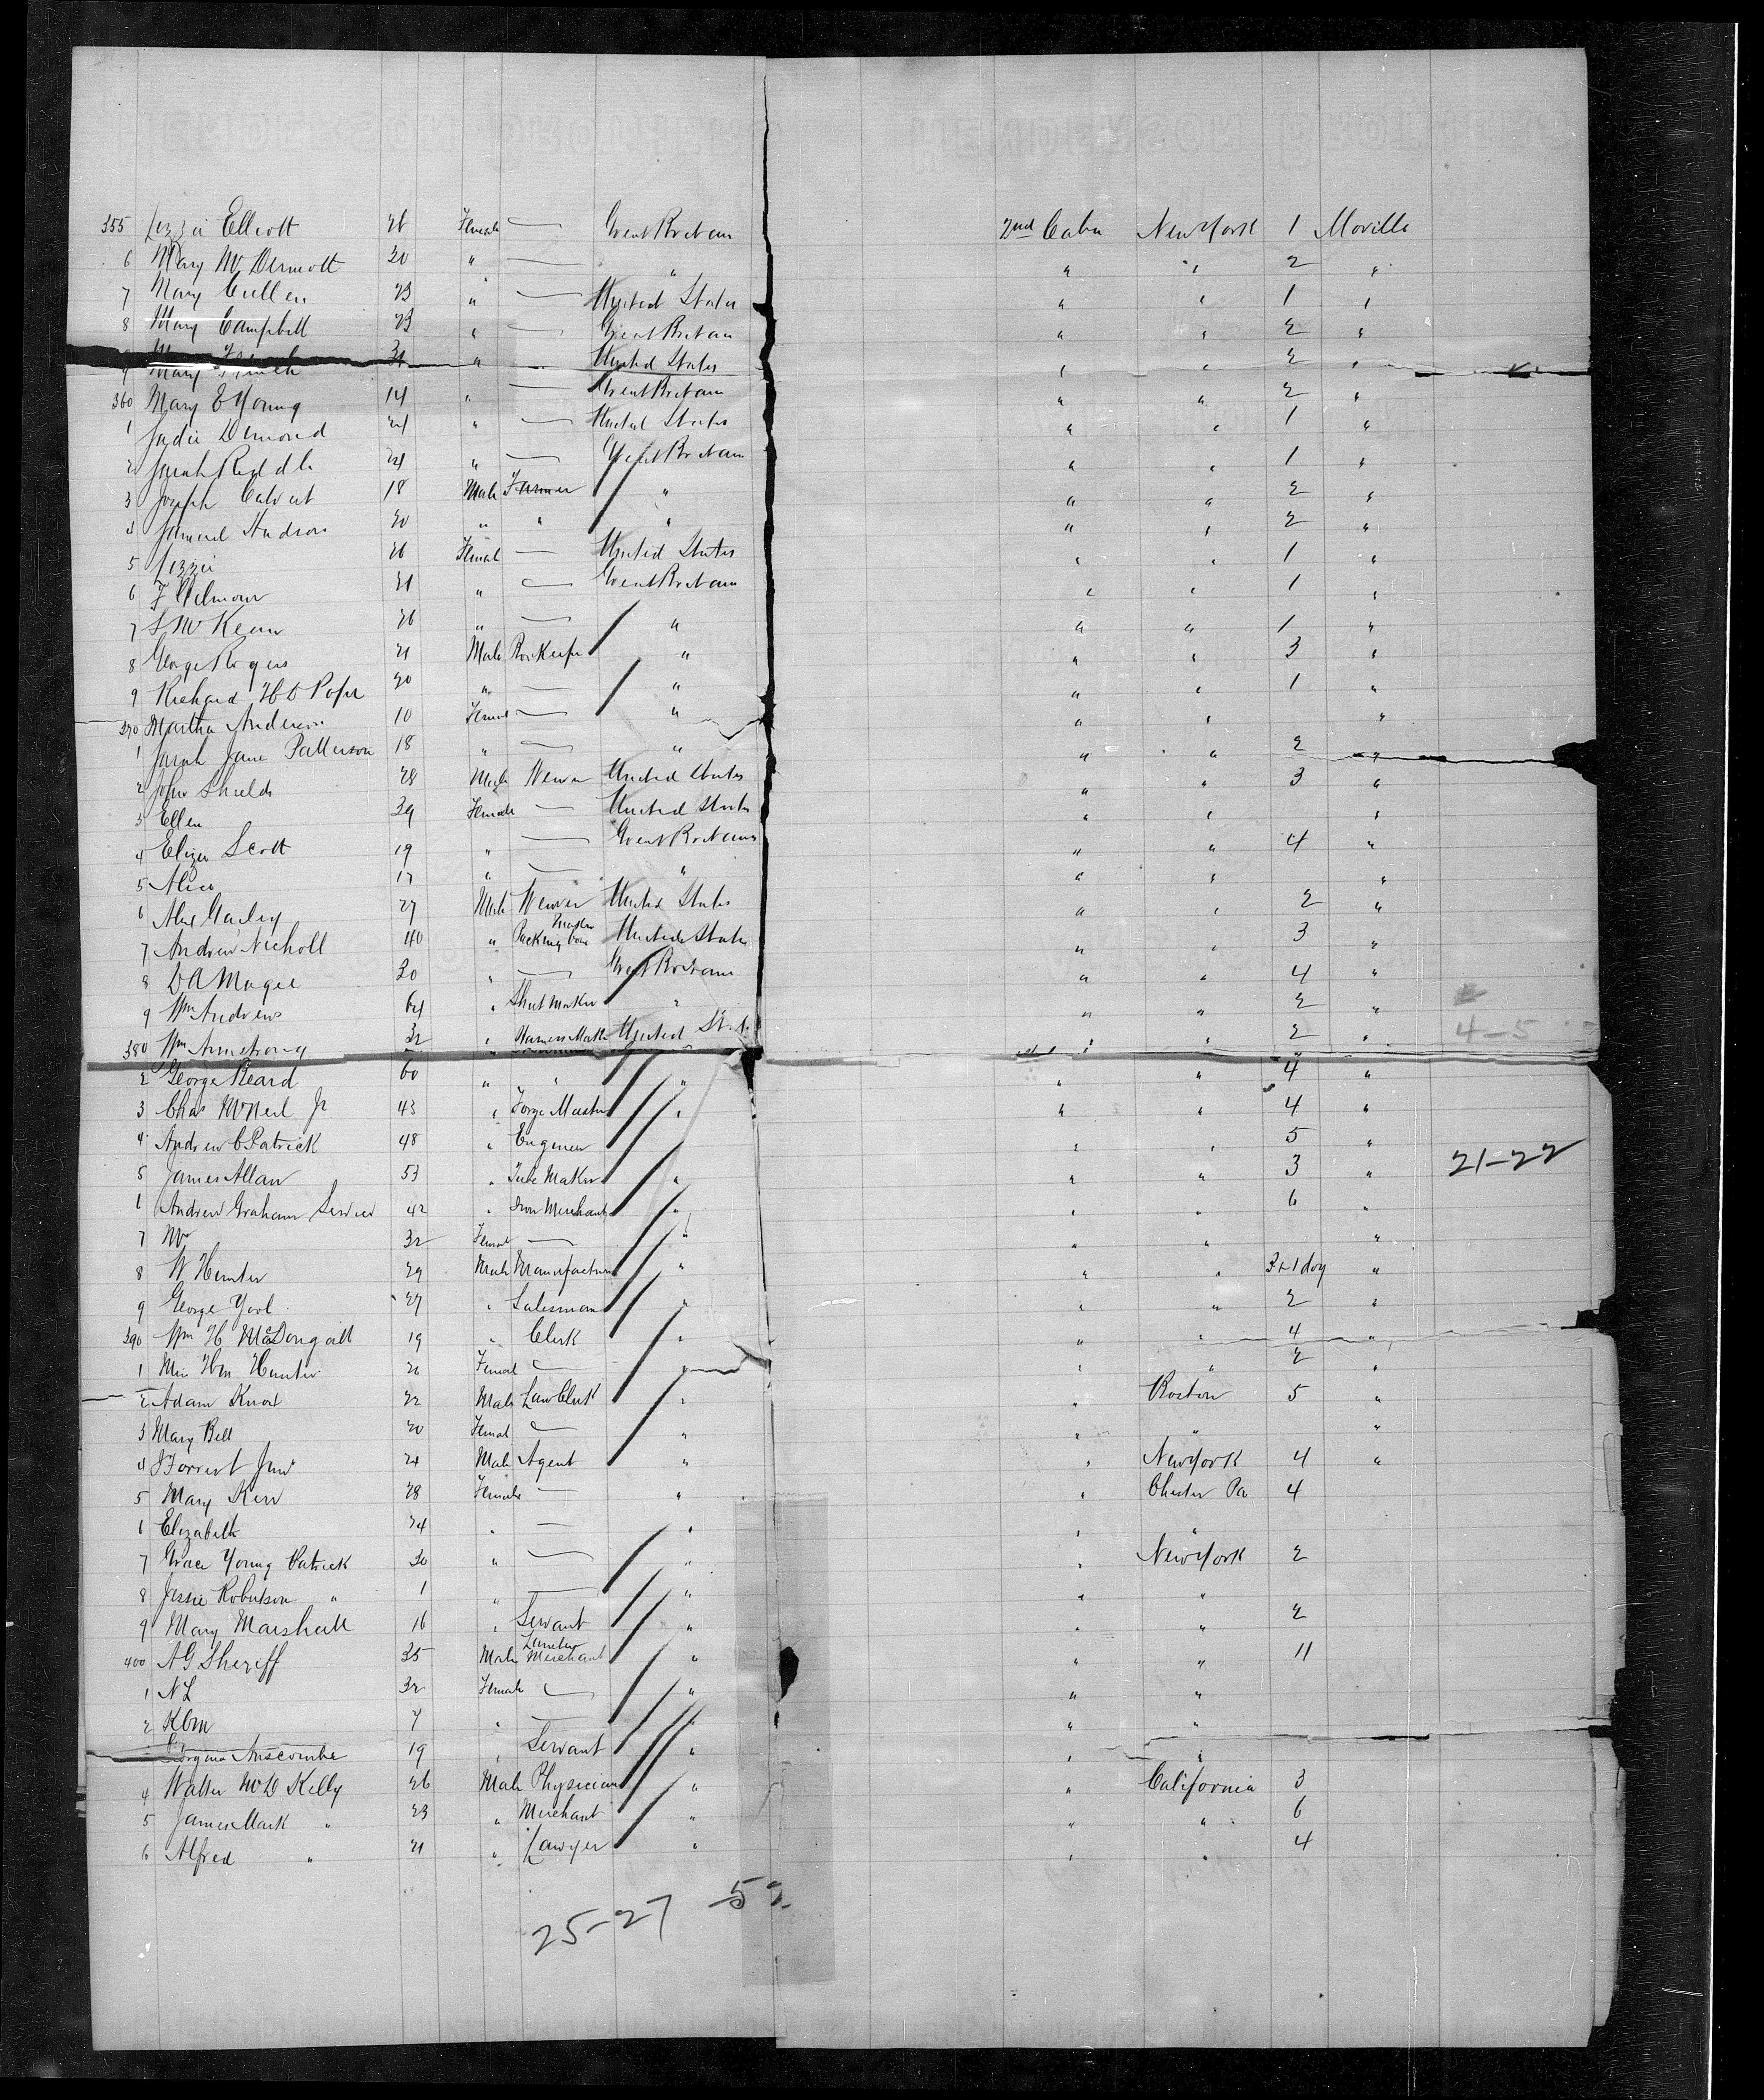 355 Lizzie Elliott 26 Female — Great Britain 2nd Cabin New York 1 Moville
6 Mary McDermott 20 " — " " " 2 "
7 Mary Cullen 23 " — United States " " 1 "
8 Mary Campbell 23 " — Great Britain " " 2 "
9 Mary " — United States " " 2 "
360 Mary E Young 14 " — Great Britain " " 2 "
1 Sadie Dimond 24 " — United States " " 1 "
2 Sarah Riddle 24 " — Great Britain " " 1 "
3 Joseph Calvert 18 Male Farmer " " " 2 "
4 Samuel Hudson 20 " " " " " 2 "
5 Lizzie 26 Female — United States " " 1 "
6 F Gilmour 21 " — Great Britain " " 1 "
7 S McKeun 26 " — " " " 1 "
8 George Rogers 21 Male BarKeeper " " " 3 "
9 Richard H D Poper 20 " — " " " 1 "
370 Martha Anderson 10 Female — " " " "
1 Sarah Jane Patterson 18 " — " " " 2 "
2 John Shields 28 Male Weaver United States " " 3 "
3 Ellen 39 Female — United States " " "
4 Eliza Scott 19 " — Great Britain " " 4 "
5 Alice 17 " — " " " "
6 Alex Gailey 27 Male Weaver United States " " 2 "
7 Andrew Nicholl 40 " Packing box Maker United States " " 3 "
8 D A Magee 30 " — Great Britain " " 4 "
9 Wm Andrews 64 " Shirt Maker " " " 2 "
380 Wm Armstrong 32 " Harness Maker United St " " 2 " 4-5
2 George Beard 60 " " " " " 4 "
3 Chas McNeil Jr 43 " Forge Master " " " 4 "
4 Andrew C Patrick 48 " Engineer " " 5 "
5 James Allan 53 " Tube Maker " " " 3 " 21-22
6 Andrew Graham Service 42 " Iron Merchant " " " 6 "
7 Mrs 32 Female — " " " "
8 W Hunter 29 Male Manufacturer " " " 3 & 1 day "
9 George Yool 27 " Salesman " " " 2 "
390 Wm H McDougall 19 " Clerk " " " 4 "
1 Miss Hm Hunter 26 Female — " " " 2 "
2 Adam Knox 22 Male Law Clerk " " Boston 5 "
3 Mary Bell 20 Female — " " " "
4 J Forrest Junr 24 Male Agent " " New York 4 "
5 Mary Kerr 28 Female — " " Chester Pa 4
6 Elizabeth 24 " — " " "
7 Grace Young Patrick 30 " — " " New York 2
8 Jessie Robertson " 1 " — " " "
9 Mary Marshall 16 " Servant " " " 2
400 A G Sheriff 35 Male Lumber Merchant " " " 11
1 N L 32 Female — " " "
2 K C M 7 " — " " "
Georgina Anscombe 19 " Servant " " "
4 Walter McD Kelly 26 Male Physician " " California 3
5 James Mark " 23 " Merchant " " " 6
6 Alfred " 21 " Lawyer " " " 4
25-27